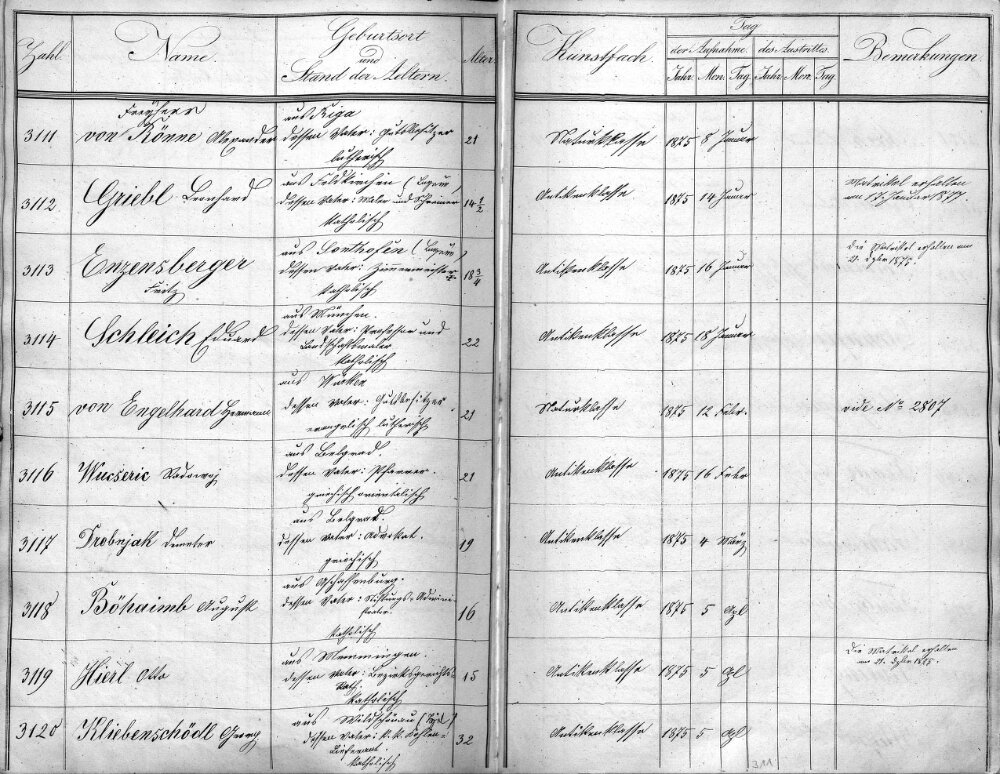 Zahl. Name. Geburtsort und Stand der Aeltern. Alter Kunstfach. Tag der Aufnahme. des Austrittes. Bemerkungen.
Jahr Mon. Tag Jahr Mon. Tag
Freyherr aus Riga
3111 von Rönne Alexander dessen Vater: Gutsbesitzer 21 Naturklasse 1875 8 Januar
lutherisch
aus Feldkirchen (Bayern) Matrikel erhalten
3112 Griebl Leonhard dessen Vater: Maler und 14 1/2 Antikenklasse 1875 14 Januar am 17. Januar 1877.
katholisch
aus Sonthofen (Bayern) Die Matrikel erhalten am
3113 Enzensberger dessen Vater: 18 3/4 Antikenklasse 1875 16 Januar 21. Dzbr 1875.
Fritz katholisch
aus München.
3114 Schleich Eduard dessen Vater: Professor und 22 Antikenklasse 1875 18 Januar
Landschaftsmaler
katholisch
aus
3115 von Engelhard Hermann dessen Vater: Gutsbesitzer 21 Naturklasse 1875 12 Febr. vide No 2807
evangelisch lutherisch
aus Belgrad.
3116 Wucseric dessen Vater: Pfarrer. 21 Antikenklasse 1875 16 Febr
griechisch orientalisch
aus Belgrad.
3117 Drobnjak Demeter dessen Vater: Advokat. 19 Antikenklasse 1875 4 März
griechisch
aus Aschaffenburg.
3118 Böhaimb August dessen Vater: Stiftungs-Admini- 16 Antikenklasse 1875 5 Apl
strator.
katholisch
aus Memmingen. Die Matrikel erhalten
3119 Hierl Otto dessen Vater: Bezirksgerichts- 15 Antikenklasse 1875 5 Apl am 21. Dzbr 1875.
Rath.
katholisch
aus Wildschönau (Tyrol)
3120 Kliebenschödl Georg dessen Vater: k. k. Kohlen- 32 Antikenklasse 1875 5 Apl
Lieferant.
katholisch
311